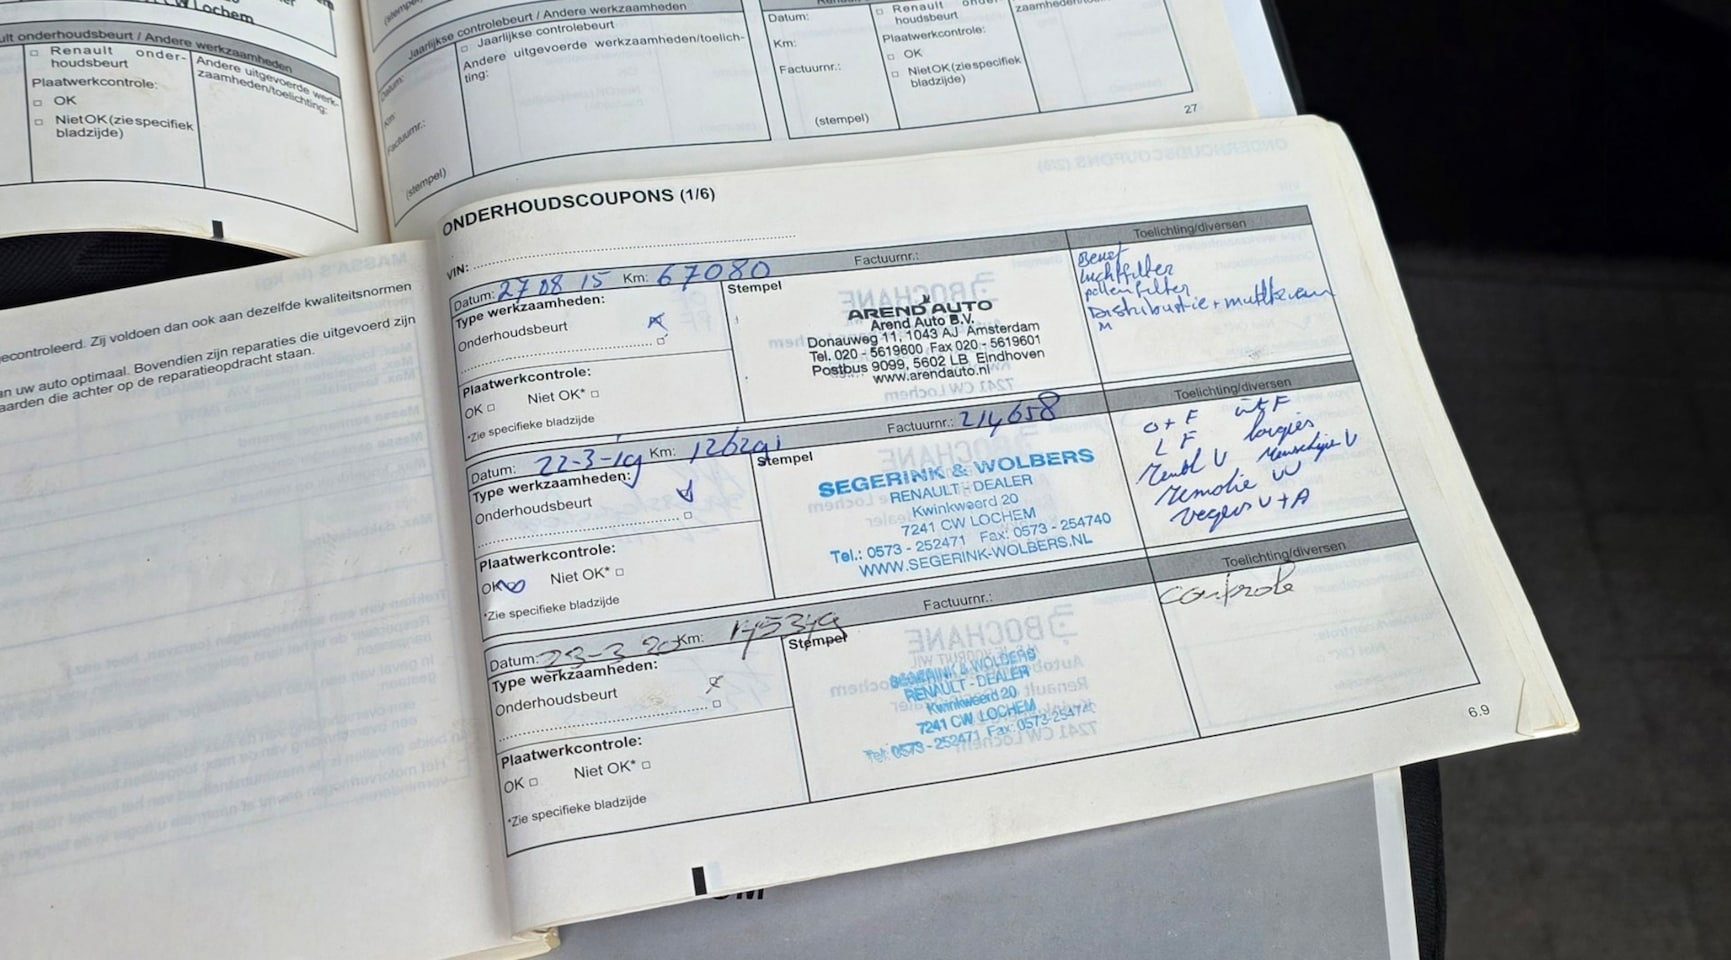 Lochem
onderhoudsbeurt / Andere werkzaamheden
□ Renault onder-
houdsbeurt
Plaatwerkcontrole:
□ OK
□ Niet OK (zie specifiek
bladzijde)
Andere uitgevoerde werk-
zaamheden/toelichting:
Jaarlijkse controlebeurt / Andere werkzaamheden
Datum:
Km:
Factuurnr.:
(stempel)
□ Jaarlijkse controlebeurt
Andere uitgevoerde werkzaamheden/toelich-
ting:
Datum:
Km:
Factuurnr.:
(stempel)
□ Renault onder-
houdsbeurt
Plaatwerkcontrole:
□ OK
□ Niet OK (zie specifiek
bladzijde)
27
gecontroleerd. Zij voldoen dan ook aan dezelfde kwaliteitsnormen
an uw auto optimaal. Bovendien zijn reparaties die uitgevoerd zijn
aarden die achter op de reparatieopdracht staan.
ONDERHOUDSCOUPONS (1/6)
VIN:
Datum: 27 08 15 Km: 67080 Factuurnr.:
Toelichting/diversen
Type werkzaamheden:
Onderhoudsbeurt
Plaatwerkcontrole:
OK □ Niet OK* □
*Zie specifieke bladzijde
Stempel
AREND AUTO
Arend Auto B.V.
Donauweg 11, 1043 AJ Amsterdam
Tel. 020 - 5619600 Fax 020 - 5619601
Postbus 9099, 5602 LB Eindhoven
www.arendauto.nl
luchtfilter
pollenfilter
Datum: 22-3-19 Km: Factuurnr.: 214658
Toelichting/diversen
Type werkzaamheden:
Onderhoudsbeurt
Plaatwerkcontrole:
OK Niet OK* □
*Zie specifieke bladzijde
Stempel
SEGERINK & WOLBERS
RENAULT - DEALER
Kwinkweerd 20
7241 CW LOCHEM
Tel.: 0573 - 252471 Fax: 0573 - 254740
WWW.SEGERINK-WOLBERS.NL
O + F
L F
V + A
Datum: 23-3 20 Km: Factuurnr.:
Toelichting/diversen
Type werkzaamheden:
Onderhoudsbeurt
Plaatwerkcontrole:
OK □ Niet OK* □
*Zie specifieke bladzijde
Stempel
SEGERINK & WOLBERS
RENAULT - DEALER
Kwinkweerd 20
7241 CW LOCHEM
Tel.: 0573 - 252471 Fax: 0573-254740
controle
6.9